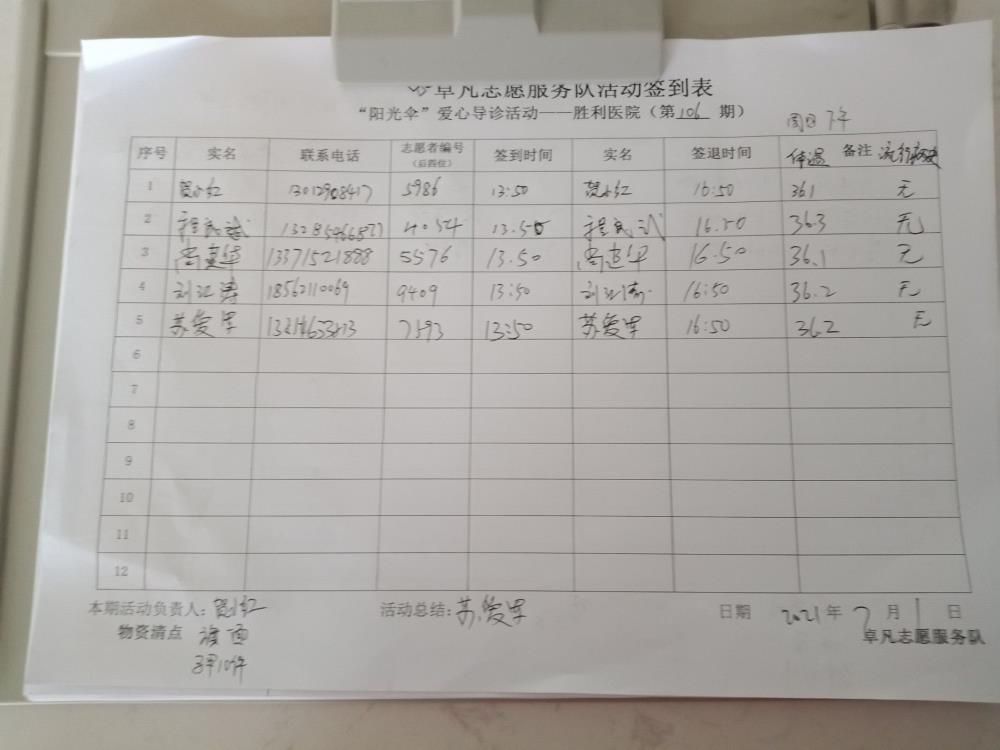 卓凡志愿服务队活动签到表
“阳光伞”爱心导诊活动——胜利医院（第106期）
下午
序号 实名 联系电话 志愿者编号（后四位） 签到时间 实名 签退时间 体温 备注
1 贺小红 5986 13:50 贺小红 16:50 36.1 无
2 4054 13.50 16.50 36.3 无
3 13371521888 5576 13.50 16.50 36.1 无
4 刘江涛 18562110069 9409 13:50 刘江涛 16:50 36.2 无
5 苏爱军 7593 13:50 苏爱军 16:50 36.2 无
6
7
8
9
10
11
12
本期活动负责人：贺小红 活动总结：苏爱军 日期 2021年7月1日
物资清点 卓凡志愿服务队